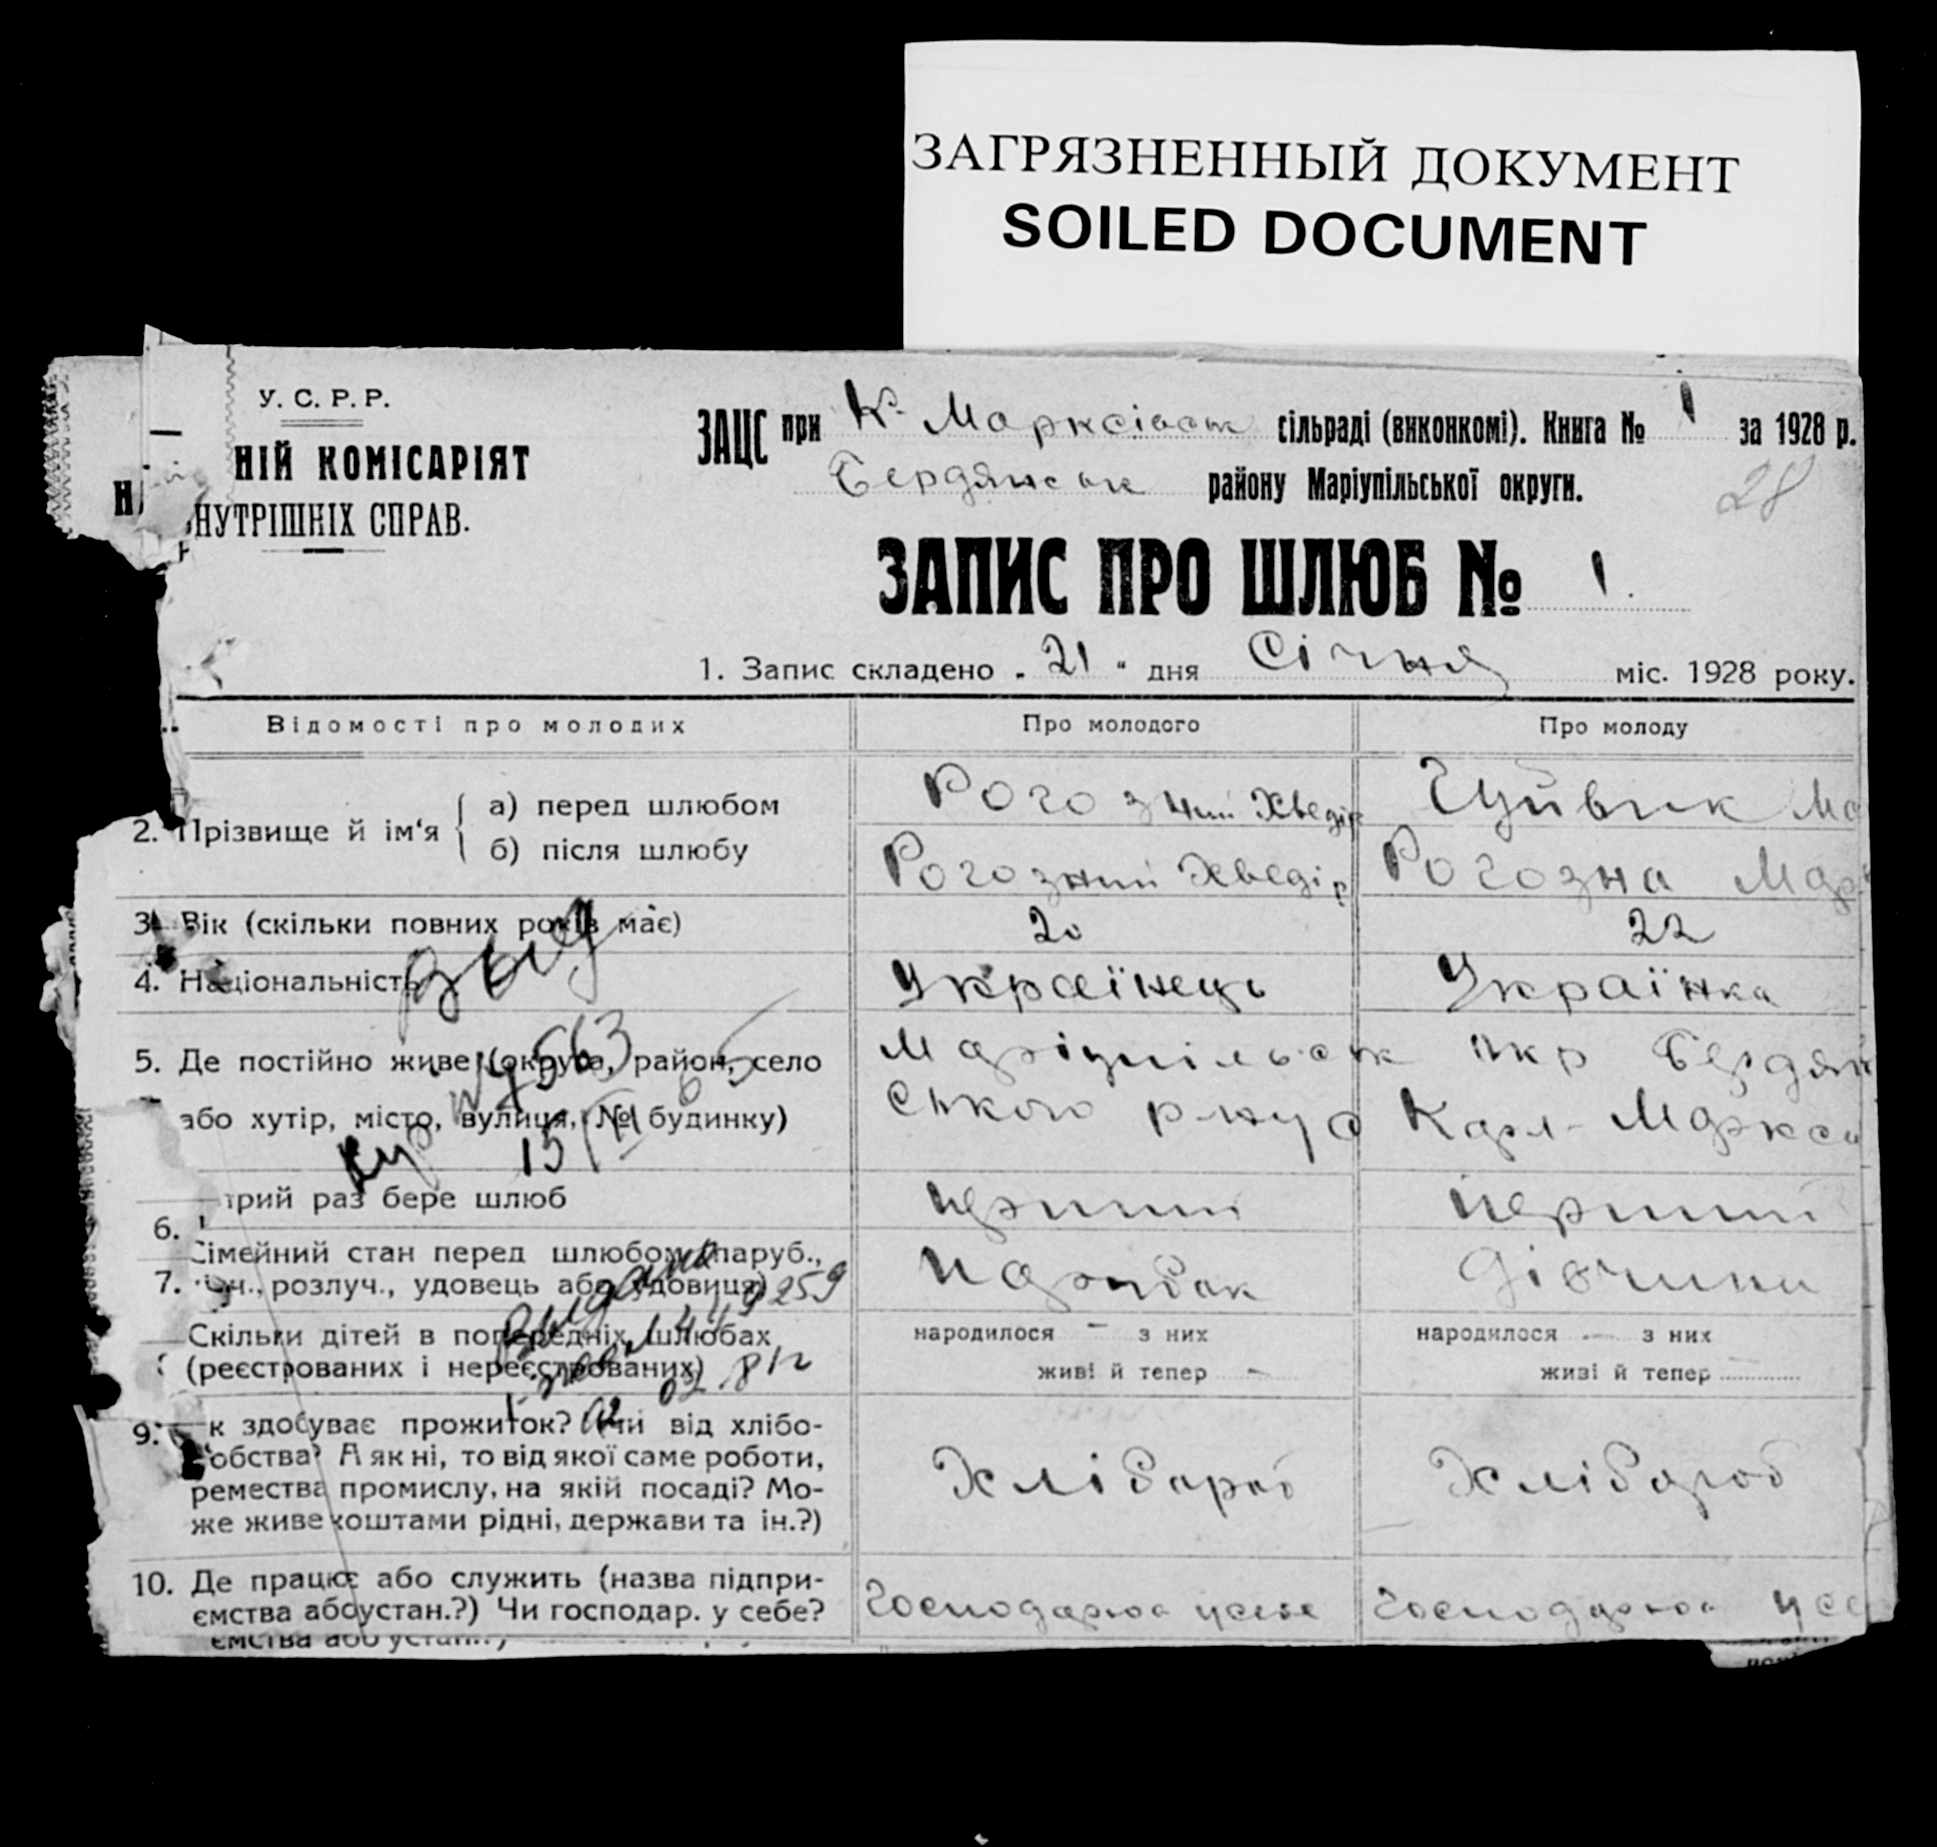 ЗАГРЯЗНЕННЫЙ ДОКУМЕНТ
SOILED DOCUMENT
У. С. Р. Р.
НІЙ КОМІСАРІЯТ
НУТРІШНІХ СПРАВ.
ЗАЦС при К. Марксівськ сільраді (виконкомі). Книга № 1 за 1928 р.
Бердянськ району Маріупільської округи.
28
ЗАПИС ПРО ШЛЮБ № 1.
1. Запис складено „ 21 “ дня Січня міс. 1928 року.
Відомості про молодих
Про молодого
Про молоду
2. Прізвище й ім‘я
а) перед шлюбом
Рогозний Хведір
Чуйвик Ма
б) після шлюбу
Рогозний Хведір
Рогозна Мар
3. Вік (скільки повних років має)
20
22
4. Національність
Українець
Українка
5. Де постійно живе (округа, район, село
або хутір, місто, вулиця, № будинку)
Маріупільськ окр Бердян
ського р-ну с Карл-Маркса
6. трий раз бере шлюб
перший
перший
7. Сімейний стан перед шлюбом (паруб.,
вч., розлуч., удовець або удовиця)
Парубок
Дівчина
Скільки дітей в попередніх шлюбах
(реєстрованих і нереєстрованих)
народилося — з них
живі й тепер —
народилося — з них
живі й тепер
9. к здобуває прожиток? (Чи від хлібо-
обства? А як ні, то від якої саме роботи,
ремества промислу, на якій посаді? Мо-
же живе коштами рідні, держави та ін.?)
Хлібороб
Хлібороб
10. Де працює або служить (назва підпри-
ємства або устан.?) Чи господар. у себе?
Господарює у себе
Господарює у се